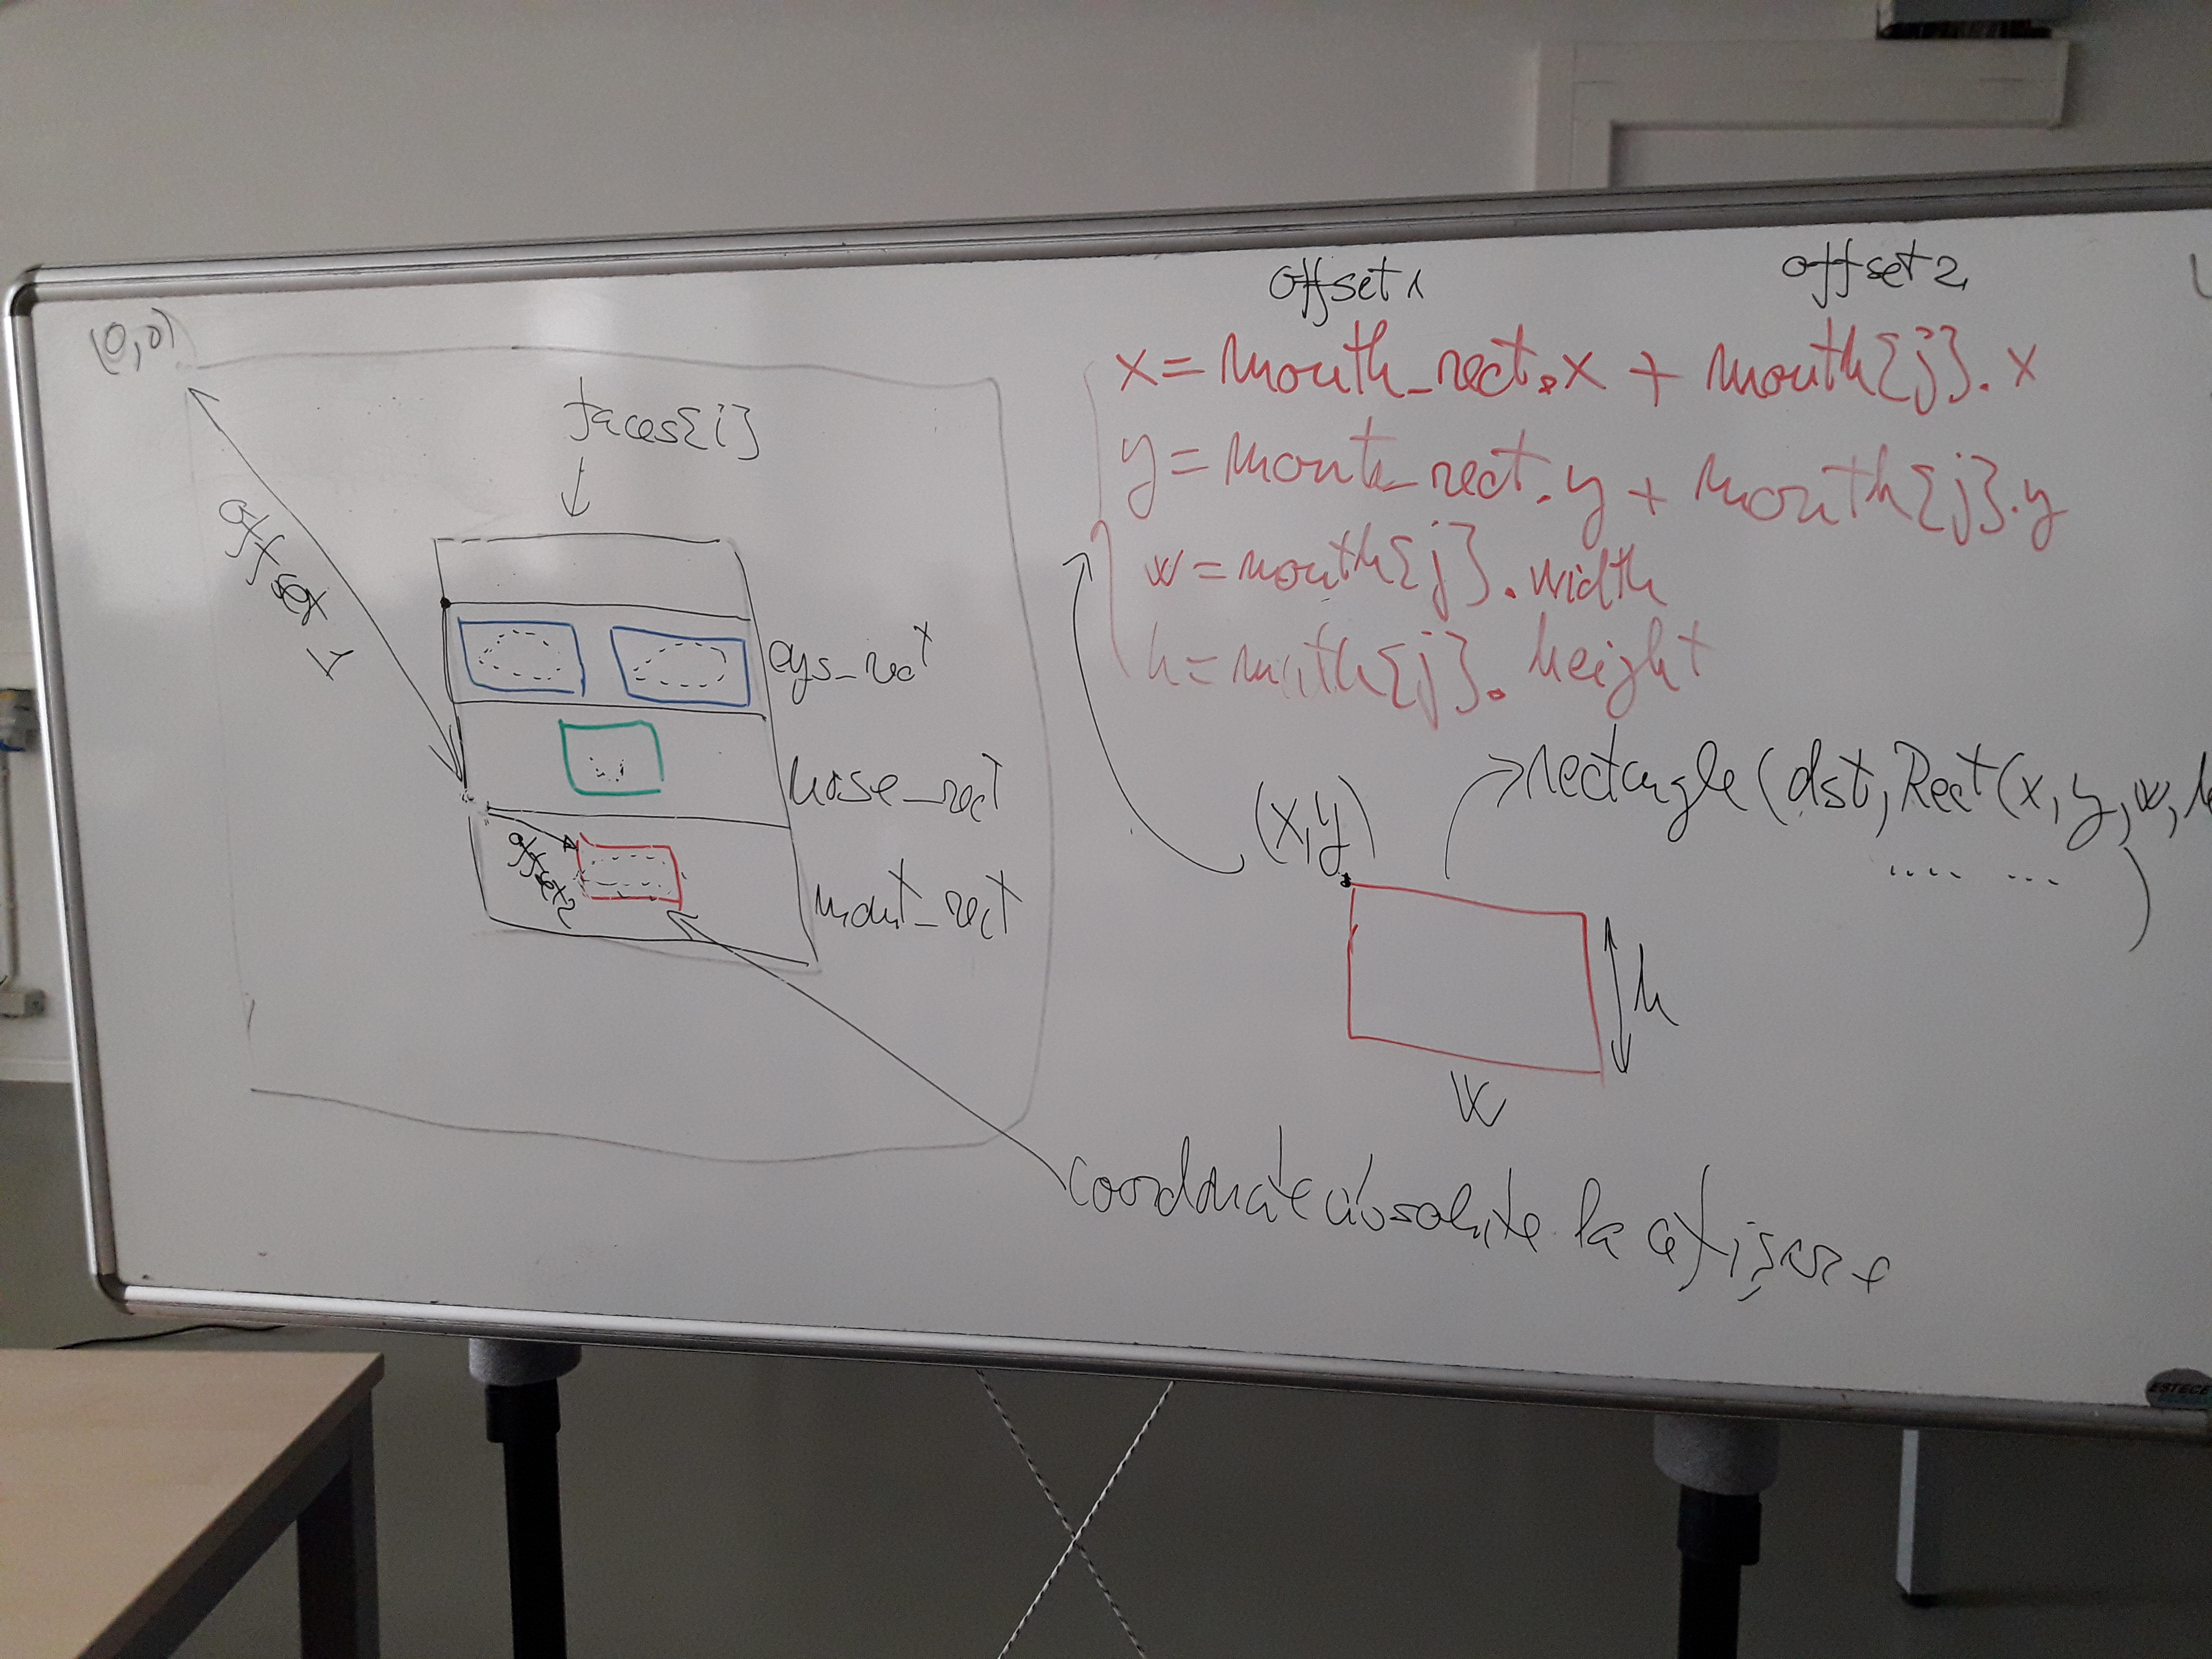 (0,0)
faces[i]
offset 1
eys_rect
nose_rect
mout_rect
offset2
offset1 offset2
x = mouth_rect.x + mouth[j].x
y = mouth_rect.y + mouth[j].y
w = mouth[j].width
h = mouth[j].height
rectangle(dst, Rect(x, y, w, h
.... ...)
(x,y)
h
w
coordonate absolute la afișare
ESTECE